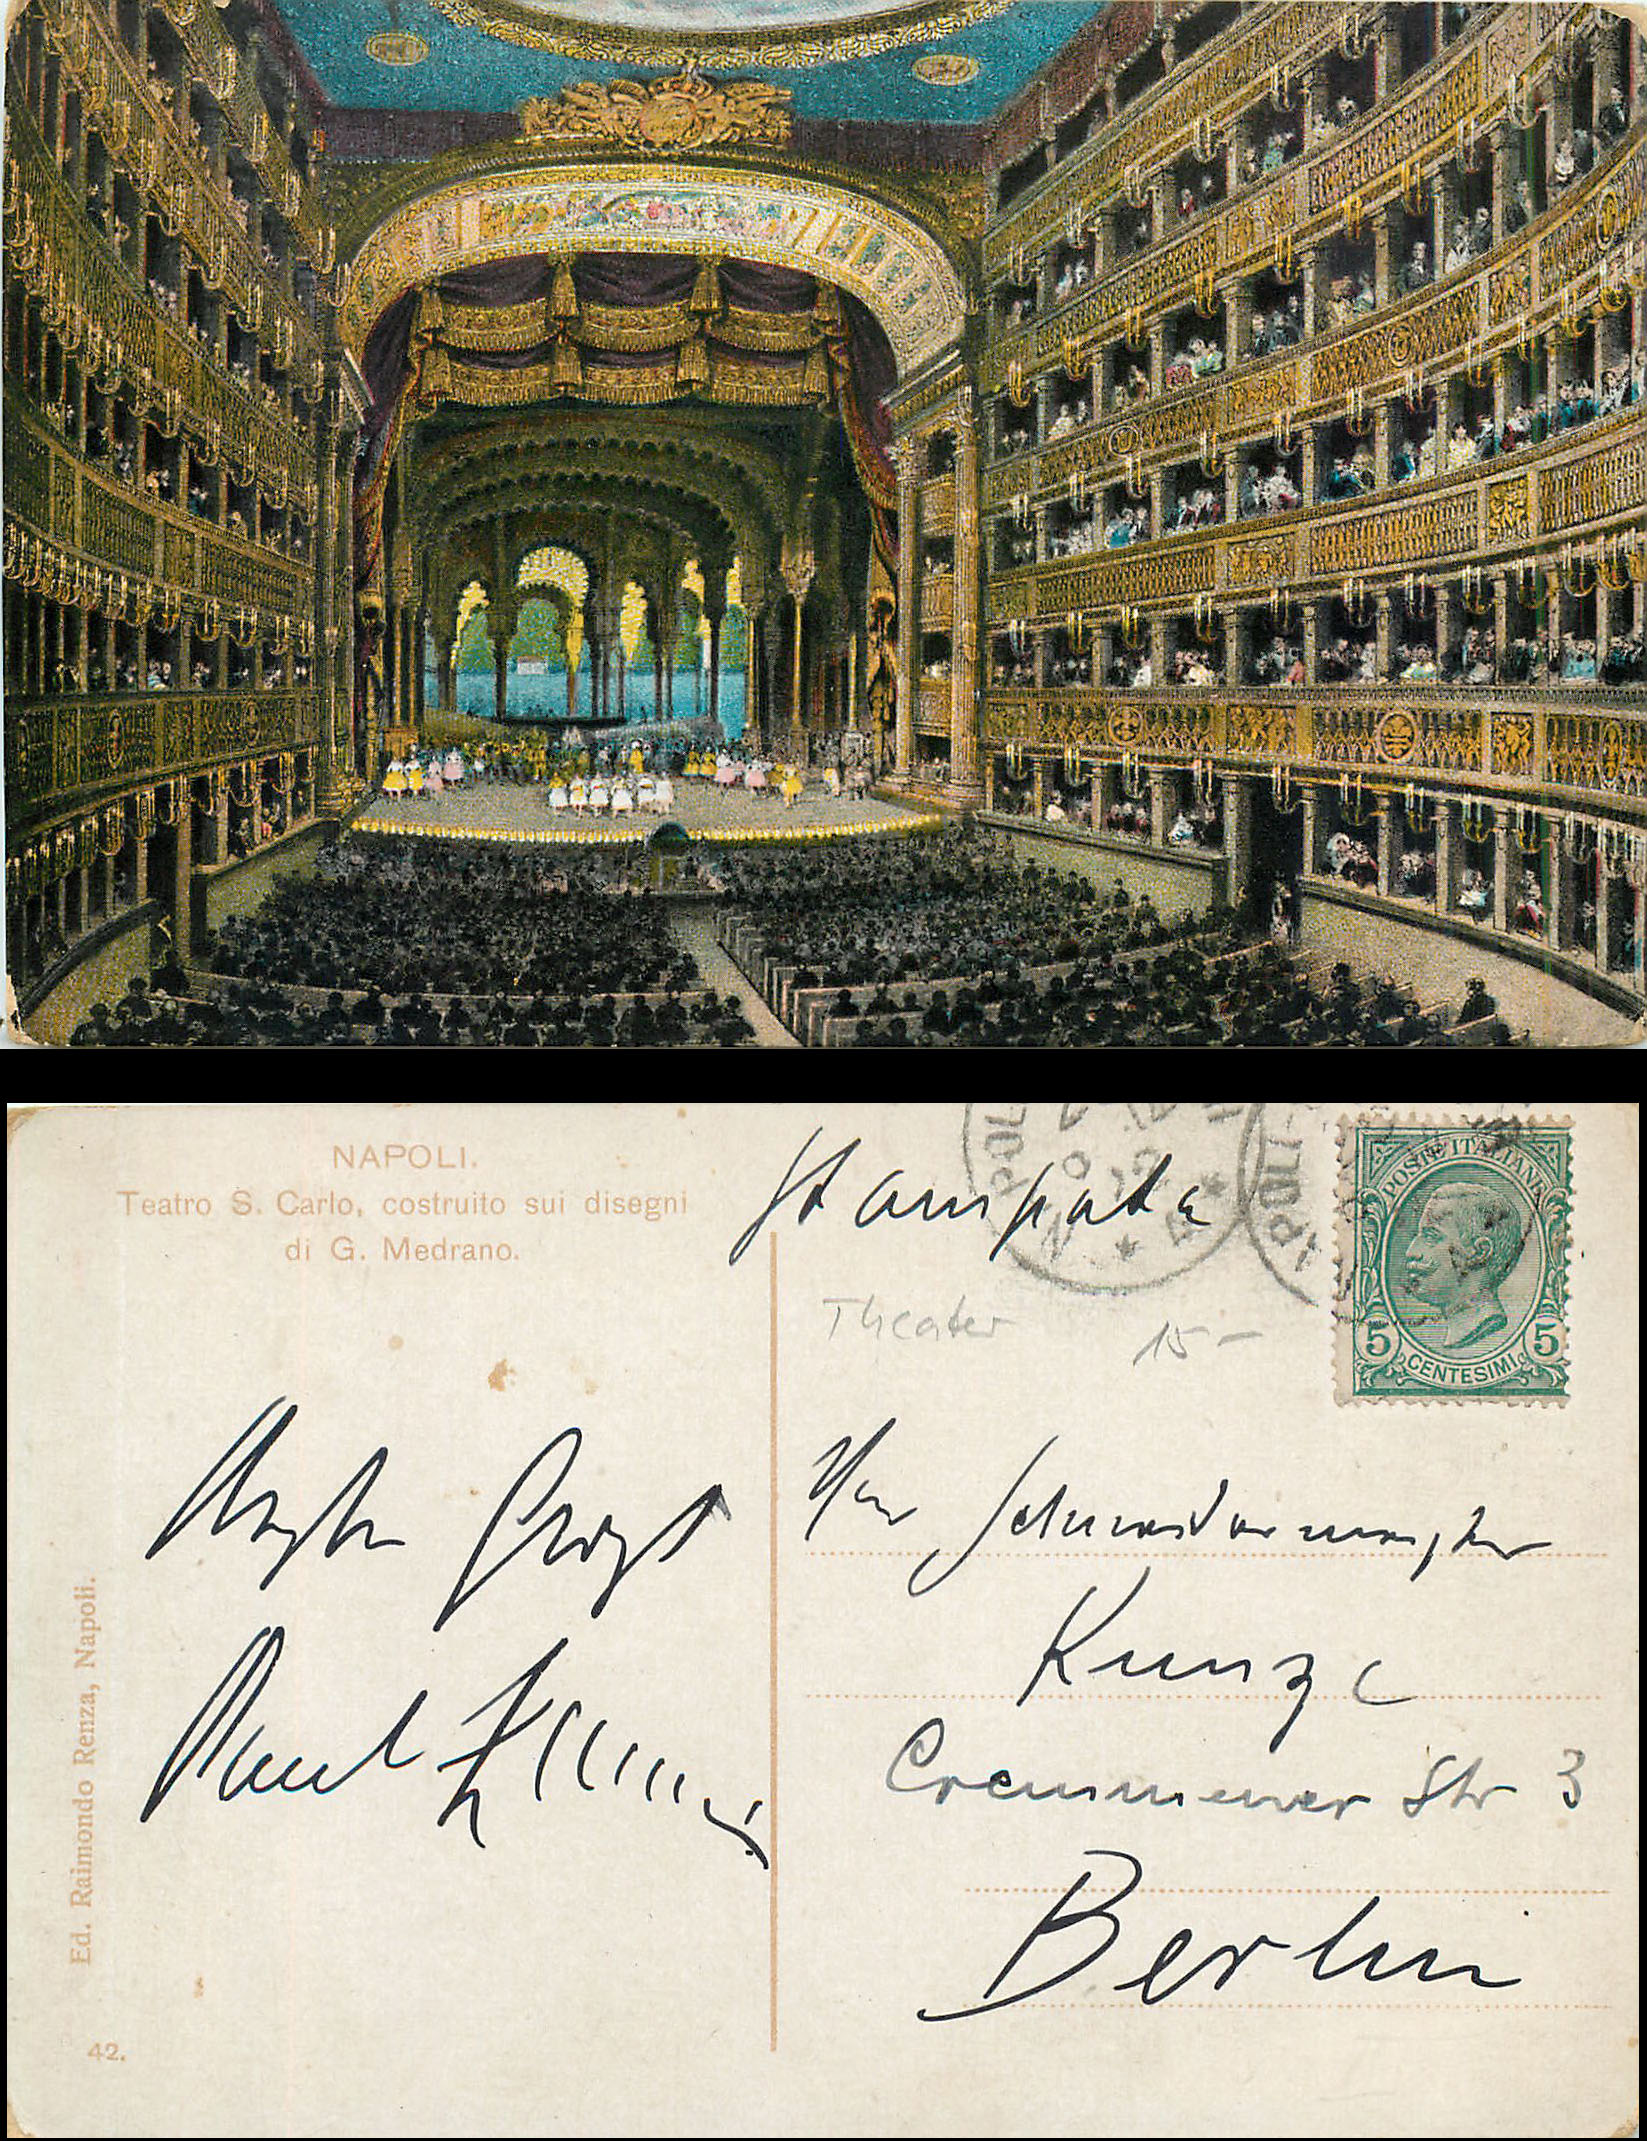 NAPOLI.
Teatro S. Carlo, costruito sui disegni
di G. Medrano.
Stampata
POSTE ITALIANE
5 5
CENTESIMI
Theater 15-
Herr Schneidermeister
Kunze
Cremmener Str 3
Berlin
Paul
Ed. Raimondo Renza, Napoli.
42.